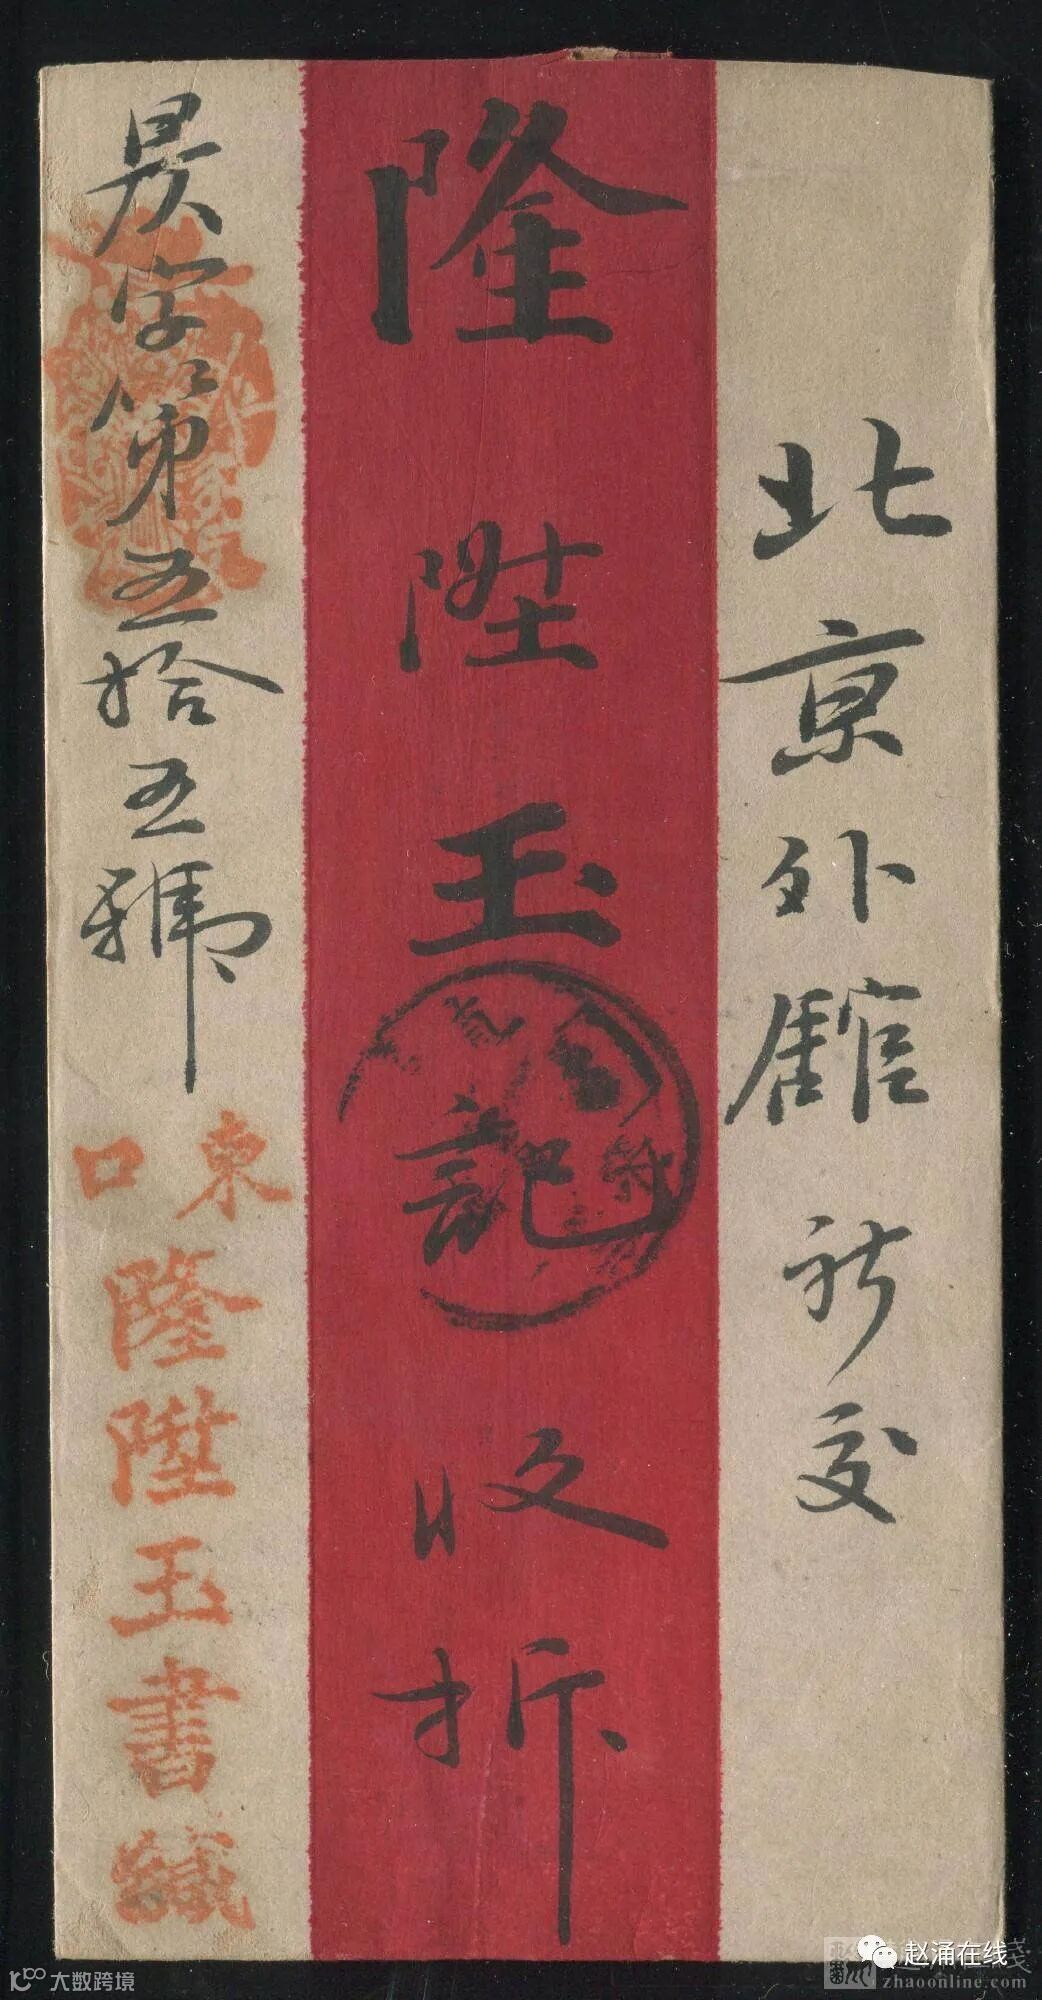 北京外舘祈交
隆陞玉記收拆
昃字第五拾五號
東口
隆陞玉書緘
赵涌在线
zhaoonline.com
大数跨境